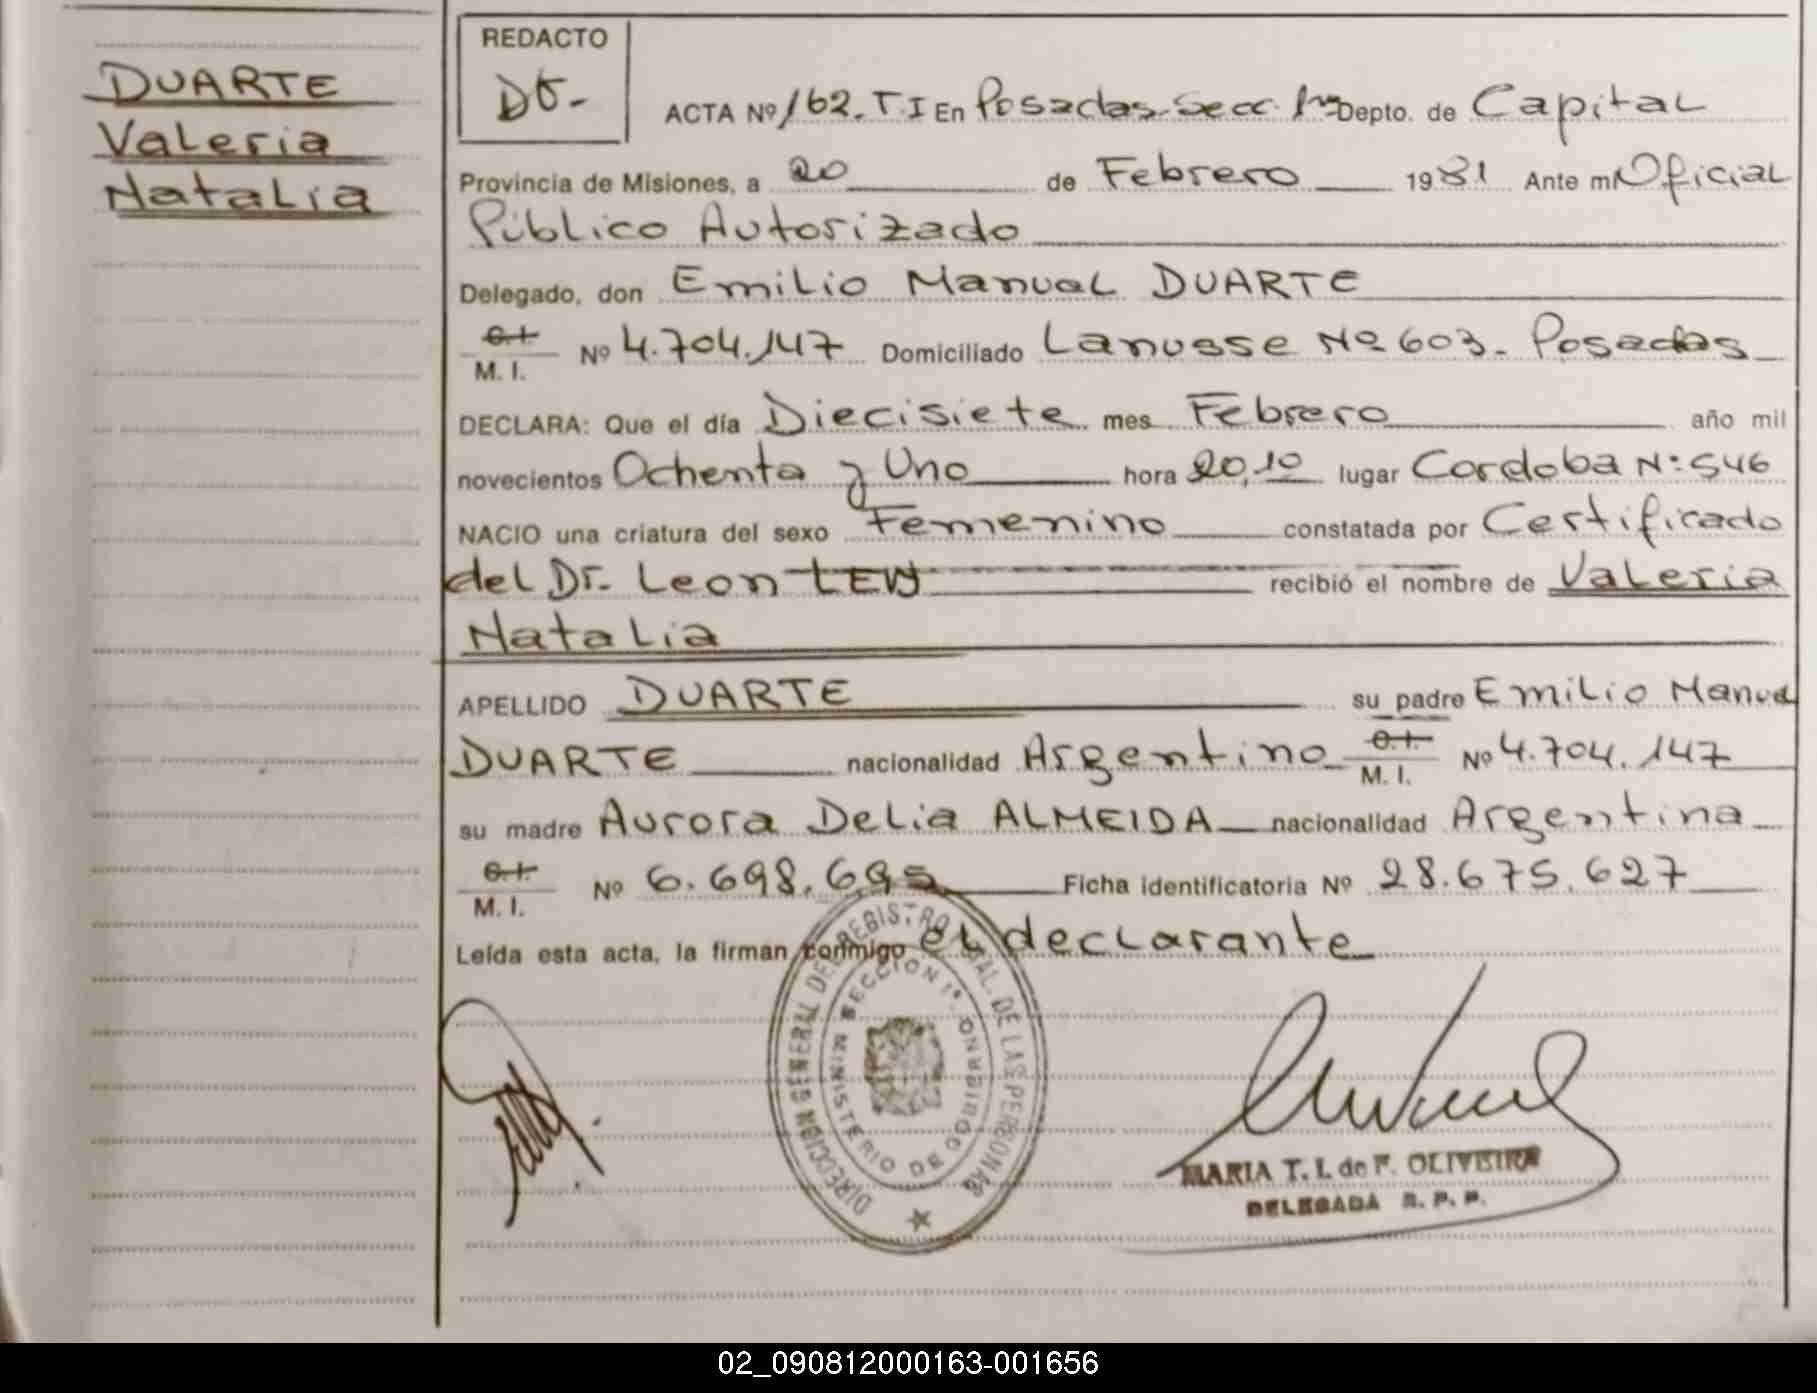 DUARTE
Valeria
Natalia
REDACTO
ACTA Nº 162. T. I En Posadas-Secc. 1ra Depto. de Capital
Provincia de Misiones, a 20 de Febrero 1981 Ante mi Oficial
Público Autorizado
Delegado, don Emilio Manual DUARTE
C.I. / M. I. Nº 4.704.147 Domiciliado Lanusse Nº 603. Posadas
DECLARA: Que el día Diecisiete mes Febrero año mil
novecientos Ochenta y Uno hora 20,10 lugar Cordoba N: 546
NACIO una criatura del sexo Femenino constatada por Certificado
del Dr. Leon LEVY recibió el nombre de Valeria
Natalia
APELLIDO DUARTE su padre Emilio Manuel
DUARTE nacionalidad Argentino C.I. / M. I. Nº 4.704.147
su madre Aurora Delia ALMEIDA nacionalidad Argentina
C.I. / M. I. Nº 6.698.695 Ficha identificatoria Nº 28.675.627
Leída esta acta, la firman conmigo el declarante
DIRECCION GENERAL DEL REGISTRO PCIAL. DE LAS PERSONAS
SECCION 1ª. MINISTERIO DE GOBIERNO
MARIA T. I. de F. OLIVEIRA
DELEGADA R. P. P.
02_090812000163-001656